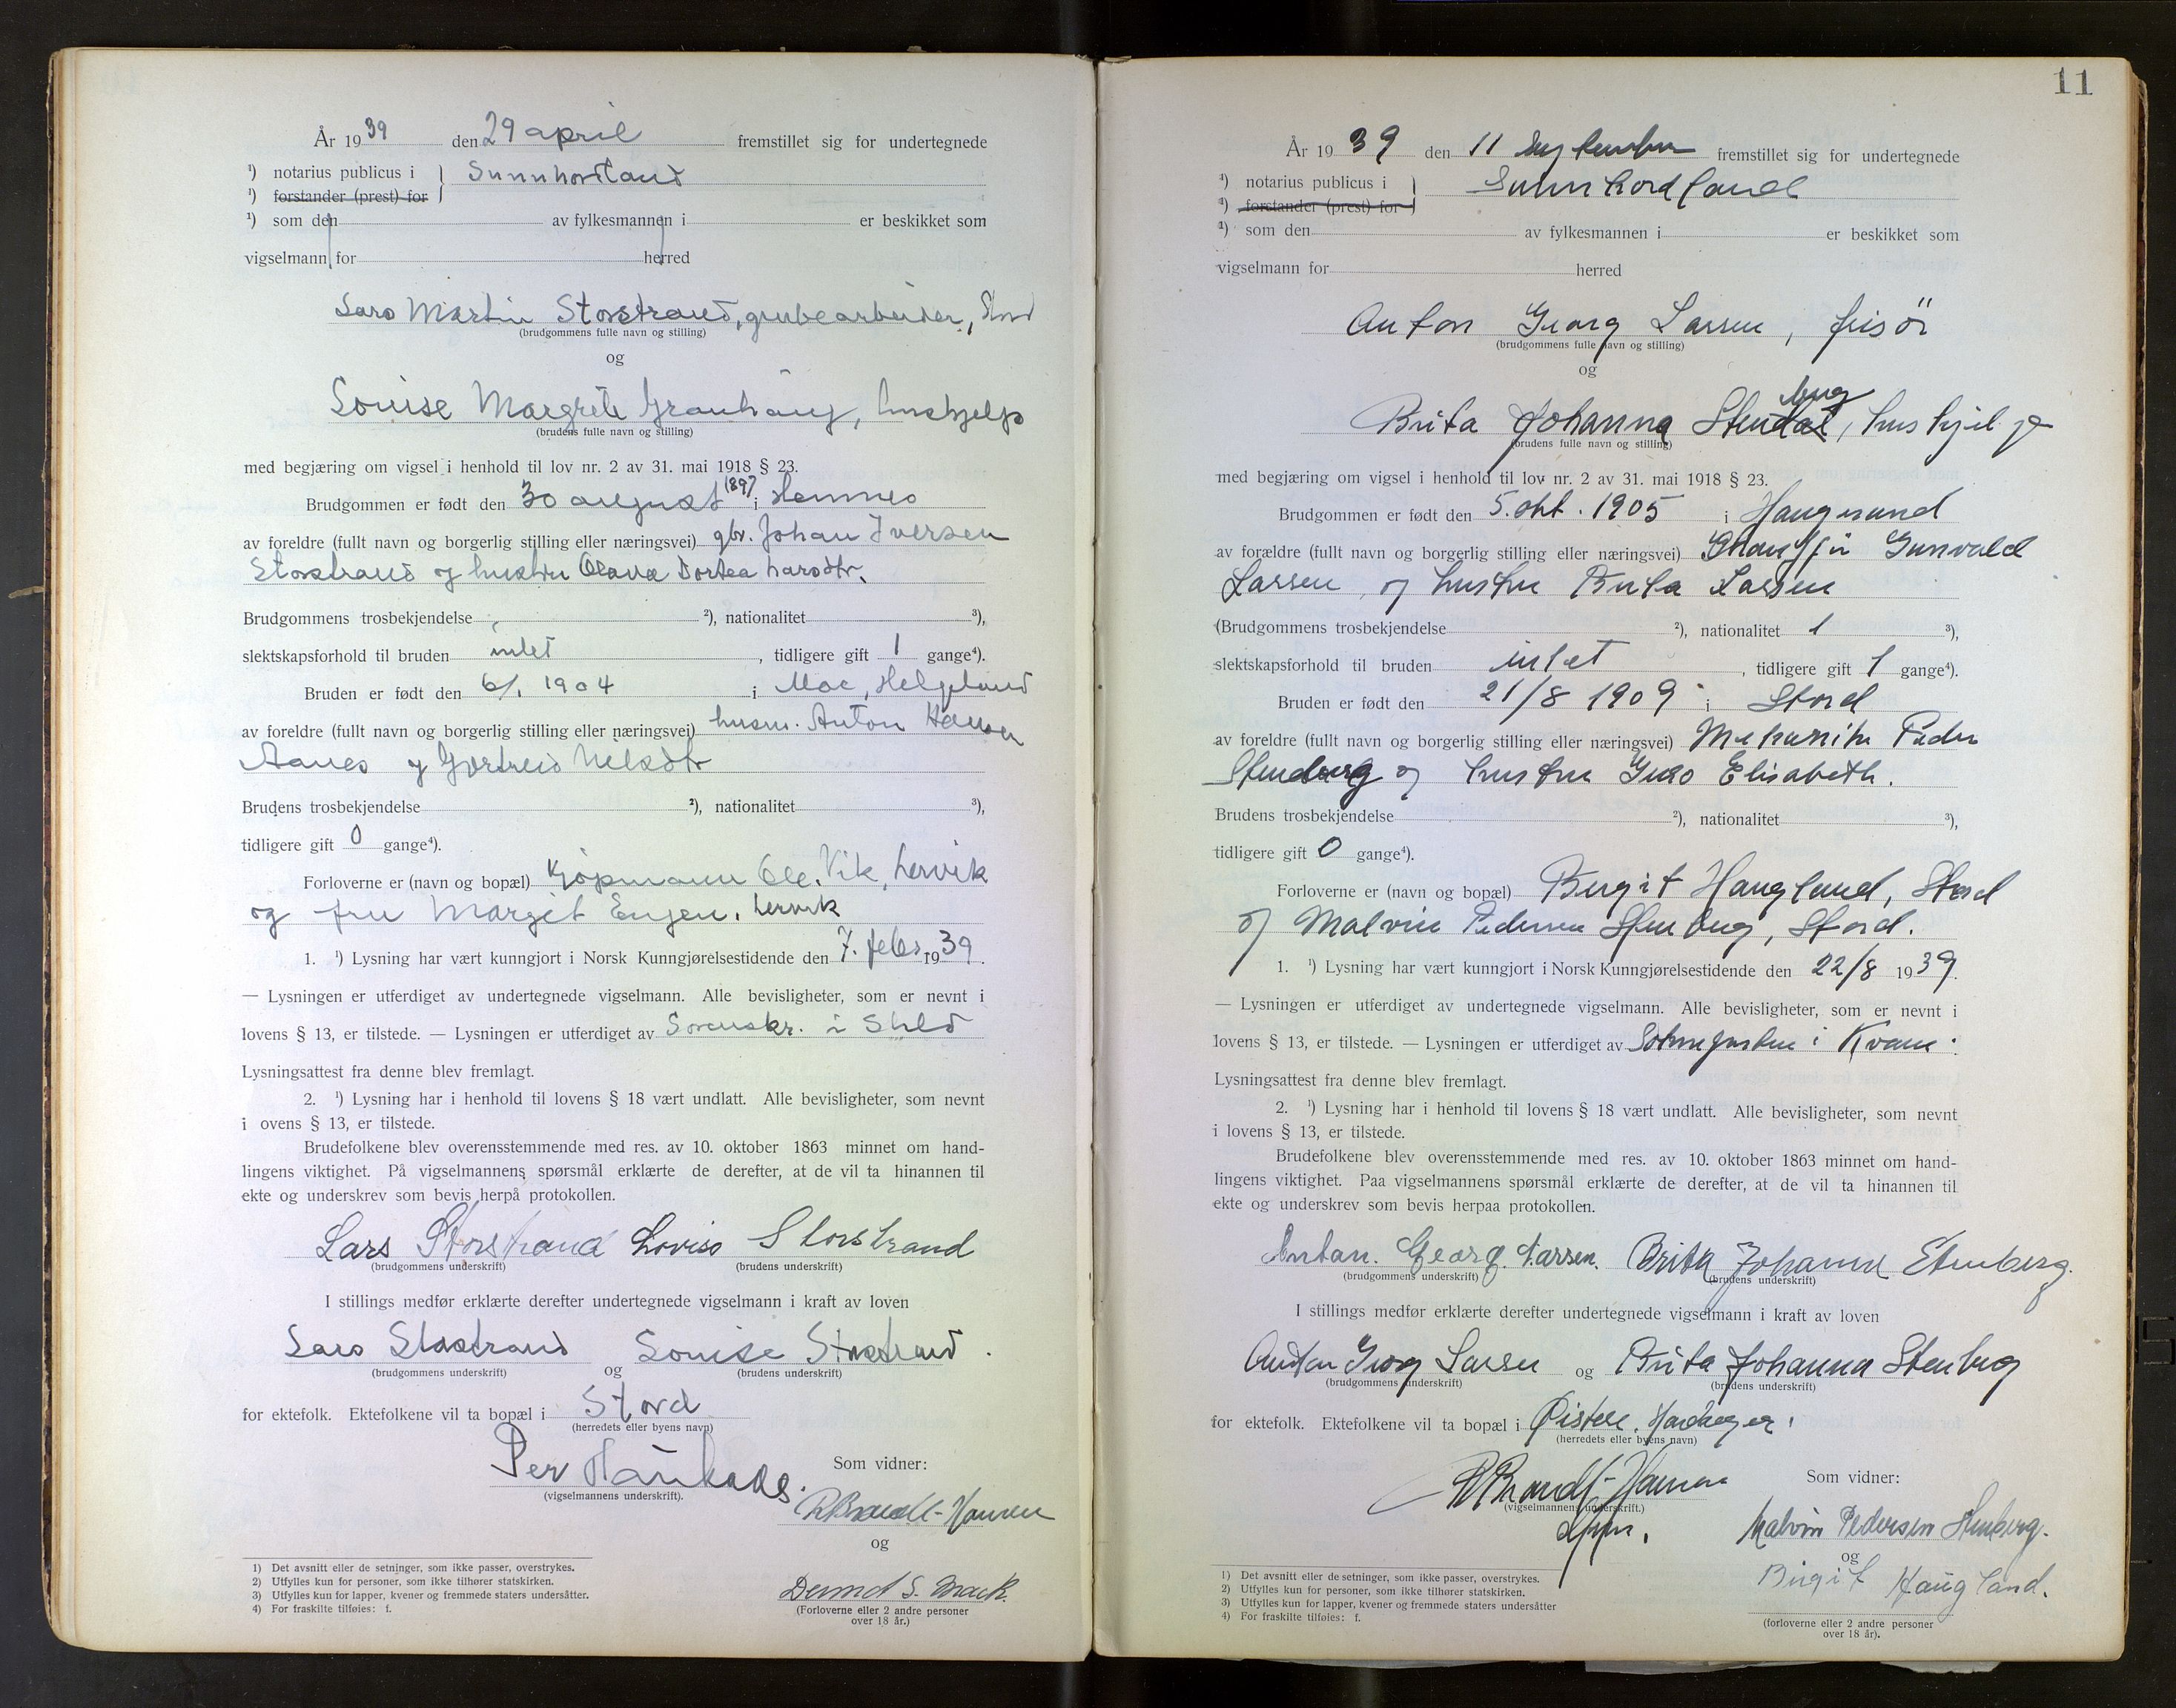 År 1939 den 29 april fremstillet sig for undertegnede
¹) notarius publicus i } Sunnhordland
¹) forstander (prest) for
¹) som den av fylkesmannen i er beskikket som
vigselmann for herred
Lars Martin Storstrand, grubearbeider, Stord
(brudgommens fulle navn og stilling)
og
Louise Margrete Granhaug, hushjelp
(brudens fulle navn og stilling)
med begjæring om vigsel i henhold til lov nr. 2 av 31. mai 1918 § 23.
Brudgommen er født den 30 august 1897 i Hemnes
av foreldre (fullt navn og borgerlig stilling eller næringsvei) gbr. Johan Iversen
Storstrand og hustru Olava Dortea Larsdtr.
Brudgommens trosbekjendelse ²), nationalitet ³),
slektskapsforhold til bruden intet, tidligere gift 1 gange⁴).
Bruden er født den 6/1 1904 i Moe, Helgeland
av foreldre (fullt navn og borgerlig stilling eller næringsvei) husm. Anton Hansen
Aanes og Gjertrud Nilsdtr
Brudens trosbekjendelse ²), nationalitet ³),
tidligere gift 0 gange⁴).
Forloverne er (navn og bopæl) Kjøpmann Ole Vik, Lervik
og fru Margit Engen, Lervik
1. ¹) Lysning har vært kunngjort i Norsk Kunngjørelsestidende den 7. febr. 1939.
— Lysningen er utferdiget av undertegnede vigselmann. Alle bevisligheter, som er nevnt i
lovens § 13, er tilstede. — Lysningen er utferdiget av Sorenskr. i
Lysningsattest fra denne blev fremlagt.
2. ¹) Lysning har i henhold til lovens § 18 vært undlatt. Alle bevisligheter, som nevnt
i ovens § 13, er tilstede.
Brudefolkene blev overensstemmende med res. av 10. oktober 1863 minnet om hand-
lingens viktighet. På vigselmannens spørsmål erklærte de derefter, at de vil ta hinannen til
ekte og underskrev som bevis herpå protokollen.
Lars Storstrand Loviso Storstrand
(brudgommens underskrift) (brudens underskrift)
I stillings medfør erklærte derefter undertegnede vigselmann i kraft av loven
Lars Storstrand og Louise Storstrand.
(brudgommens underskrift) (brudens underskrift)
for ektefolk. Ektefolkene vil ta bopæl i Stord
(herredets eller byens navn)
Per Haukaas.
(vigselmannens underskrift).
Som vidner:
R Brandt-Hansen
og
S. Mack.
(Forloverne eller 2 andre personer
over 18 år.)
1) Det avsnitt eller de setninger, som ikke passer, overstrykes.
2) Utfylles kun for personer, som ikke tilhører statskirken.
3) Utfylles kun for lapper, kvener og fremmede staters undersåtter.
4) For fraskilte tilføies: f.
11
År 1939 den 11 september fremstillet sig for undertegnede
¹) notarius publicus i } Sunnhordland
¹) forstander (prest) for
¹) som den av fylkesmannen i er beskikket som
vigselmann for herred
Anton Georg Larsen, frisör
(brudgommens fulle navn og stilling)
og
berg
Brita Johanna Stendal, hushjelp
(brudens fulle navn og stilling)
med begjæring om vigsel i henhold til lov nr. 2 av 31. mai 1918 § 23.
Brudgommen er født den 5. okt. 1905 i Haugesund
av forældre (fullt navn og borgerlig stilling eller næringsvei) Gunvald
Larsen, og hustru Brita Larsen
(Brudgommens trosbekjendelse ²), nationalitet 1 ³),
slektskapsforhold til bruden intet, tidligere gift 1 gange⁴).
Bruden er født den 21/8 1909 i Stord
av foreldre (fullt navn og borgerlig stilling eller næringsvei) Mekaniker Peder
Stenberg og hustru Guro Elisabeth.
Brudens trosbekjendelse ²), nationalitet ³),
tidligere gift 0 gange⁴).
Forloverne er (navn og bopæl) Birgit Haugland, Stord
og Malvin Pedersen Stenberg, Stord.
1. ¹) Lysning har vært kunngjort i Norsk Kunngjørelsestidende den 22/8 1939.
— Lysningen er utferdiget av undertegnede vigselmann. Alle bevisligheter, som er nevnt i
lovens § 13, er tilstede. — Lysningen er utferdiget av Soknepresten i Kvam.
Lysningsattest fra denne blev fremlagt.
2. ¹) Lysning har i henhold til lovens § 18 vært undlatt. Alle bevisligheter, som nevnt
i lovens § 13, er tilstede.
Brudefolkene blev overensstemmende med res. av 10. oktober 1863 minnet om hand-
lingens viktighet. Paa vigselmannens spørsmål erklærte de derefter, at de vil ta hinannen til
ekte og underskrev som bevis herpaa protokollen.
Anton. Georg. Larsen. Brita Johanne Stenberg.
(brudgommens underskrift) (brudens underskrift)
I stillings medfør erklærte derefter undertegnede vigselmann i kraft av loven
Anton Georg Larsen og Brita Johanna Stenberg
(brudgommens underskrift) (brudens underskrift)
for ektefolk. Ektefolkene vil ta bopæl i Øistese, Hardanger.
(herredets eller byens navn)
R Brandt-Hansen
(vigselmannens underskrift.)
Som vidner:
Malvin Pedersen Stenberg.
og
Birgit Haugland.
(forloverne eller 2 andre personer
over 18 år).
1) Det avsnitt eller de setninger, som ikke passer, overstrykes.
2) Utfylles kun for personer, som ikke tilhører statskirken.
3) Utfylles kun for lapper, kvener og fremmede staters undersåtter
4) For fraskilte tilføies: f.